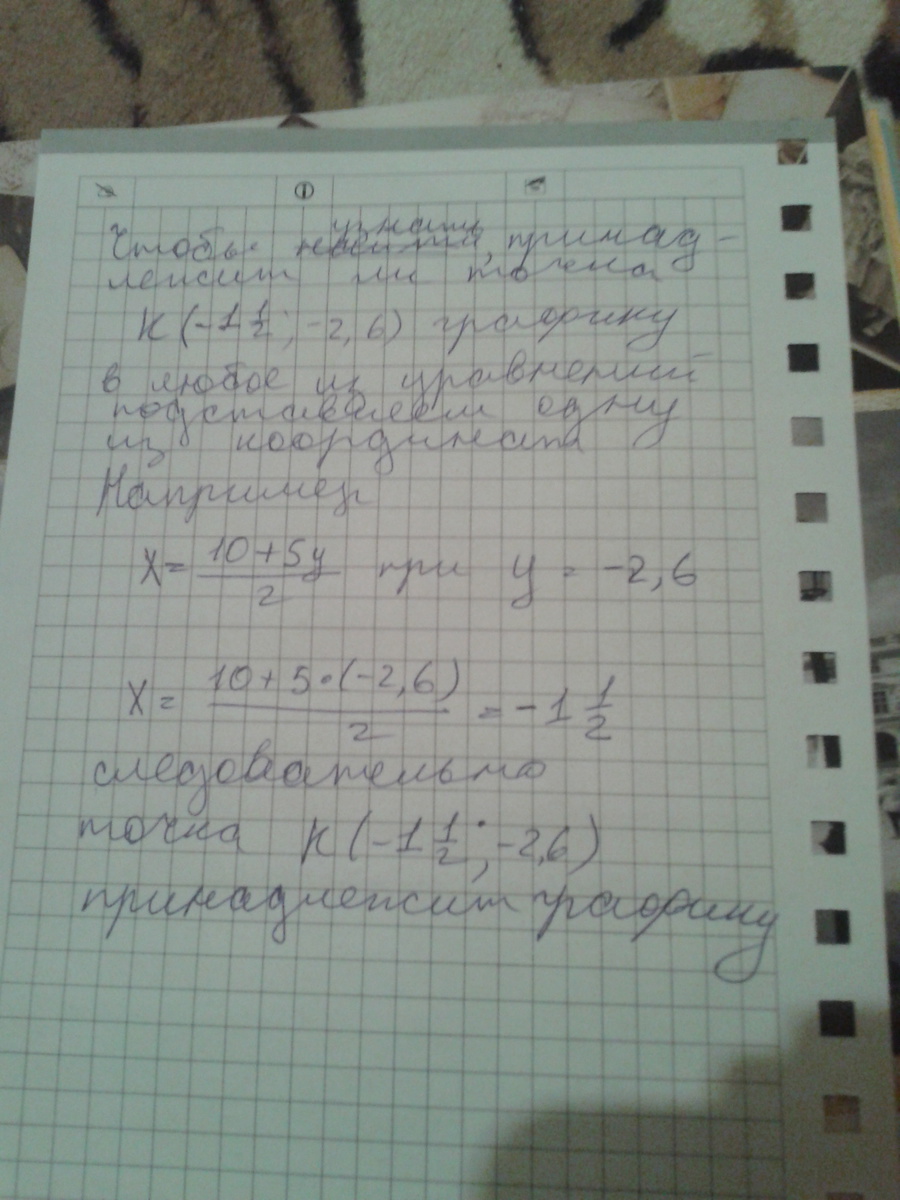 Чтобы узнать, принад-
лежит ли точка
К(-1 1/2; -2,6) графику
в любое из уравнений
подставляем одну
из координат
Например
X = (10+5y)/2 при y = -2,6
X = (10+5·(-2,6))/2 = -1 1/2
следовательно
точка К(-1 1/2; -2,6)
принадлежит графику